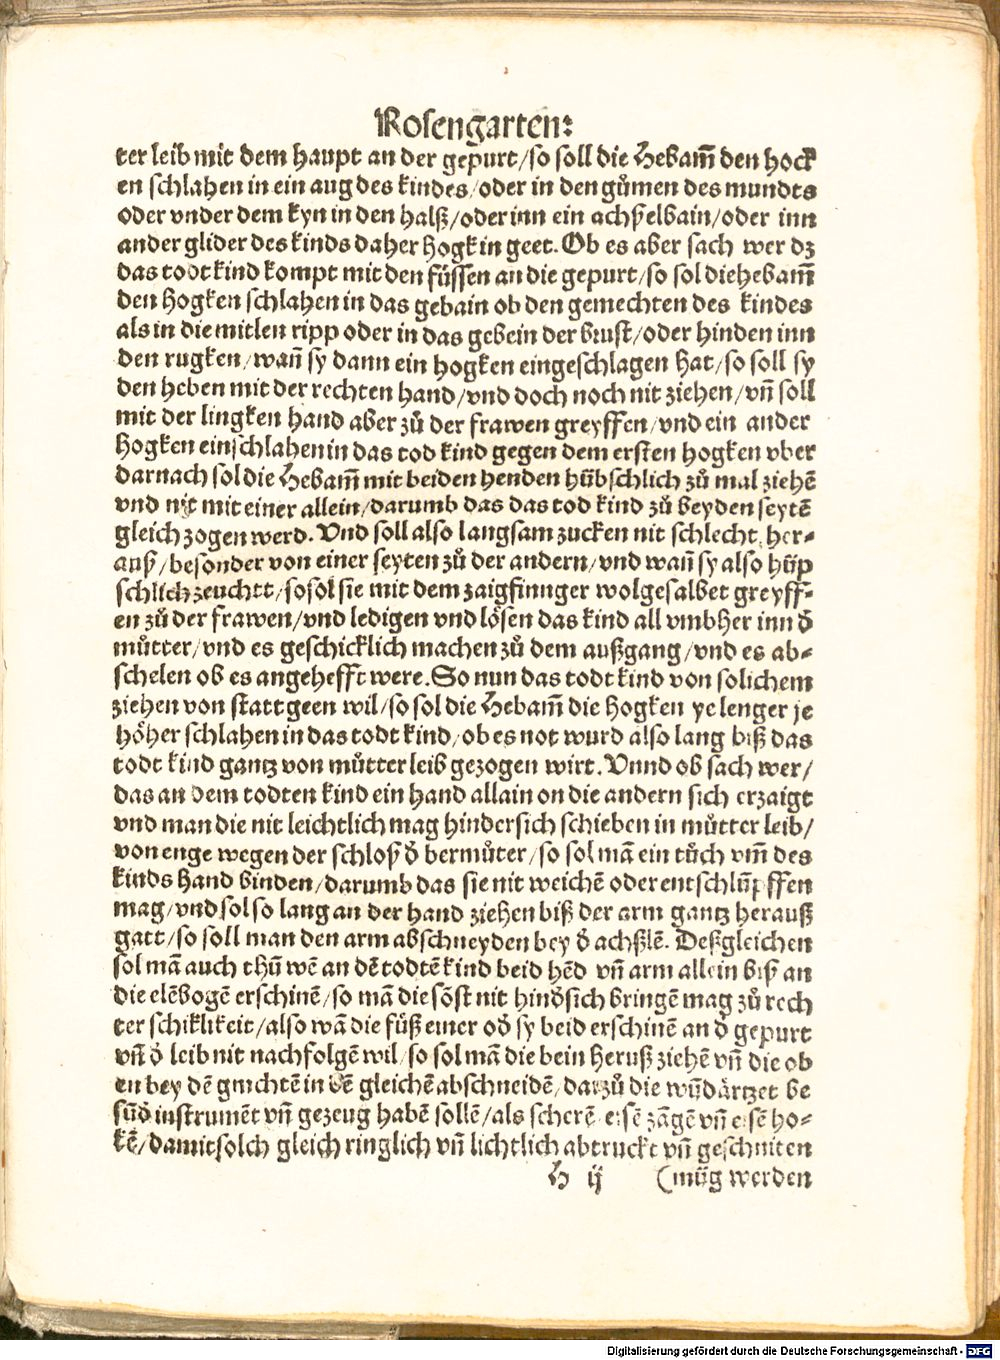 Rosengarten:
ter leib mit dem haupt an der gepurt/so soll die Hebam̄ den hock
en schlahen in ein aug des kindes/oder in den gůmen des mundts
oder vnder dem kyn in den halß/oder inn ein achßelbain/oder inn
ander glider des kinds daher hogk in geet. Ob es aber sach wer dz
das todt kind kompt mit den füssen an die gepurt/so sol diehebam̄
den hogken schlahen in das gebain ob den gemechten des kindes
als in die mitlen ripp oder in das gebein der brust/oder hinden inn
den rugken/wañ sy dann ein hogken eingeschlagen hat/so soll sy
den heben mit der rechten hand/vnd doch noch nit ziehen/vñ soll
mit der lingken hand aber zů der frawen greyffen/vnd ein ander
hogken einschlahen in das tod kind gegen dem ersten hogken vber
darnach sol die Hebam̄ mit beiden henden hübschlich zů mal ziehē
vnd nit mit einer allein/darumb das das tod kind zů beyden seytē
gleich zogen werd. Vnd soll also langsam zucken nit schlecht her-
auß/besonder von einer seyten zů der andern/vnd wañ sy also hüp
schlich zeuchtt/so sol sie mit dem zaigfinnger wolgesalbet greyff-
en zů der frawen/vnd ledigen vnd lösen das kind all vmbher inn d̕
můtter/vnd es geschicklich machen zů dem außgang/vnd es ab-
schelen ob es angehefft were. So nun das todt kind von solichem
ziehen von statt geen wil/so sol die Hebam̄ die hogken ye lenger je
höher schlahen in das todt kind/ob es not wurd also lang biß das
todt kind gantz von můtter leib gezogen wirt. Vnnd ob sach wer/
das an dem todten kind ein hand allain on die andern sich erzaigt
vnd man die nit leichtlich mag hindersich schieben in můtter leib/
von enge wegen der schloß d̕ bermůter/so sol mā ein tůch vm̄ des
kinds hand binden/darumb das sie nit weichē oder entschlüpffen
mag/vnd sol so lang an der hand ziehen biß der arm gantz herauß
gatt/so soll man den arm abschneyden bey d̕ achßlē. Deßgleichen
sol mā auch thů wē an dē todtē kind beid hēd vñ arm allein biß an
die elēbogē erschinē/so mā die sōst nit hind̕sich bringē mag zů rech
ter schiklikeit/also wā die füß einer od̕ sy beid erschinē an d̕ gepurt
vñ d̕ leib nit nachfolgē wil/so sol mā die bein heruß ziehē vñ die ob
en bey dē gmchtē in dē gleichē abschneidē/darzů die wūdärtzet be
sūd̕ instrumēt vñ gezeug habē sollē/als scherē eisē zāgē vñ eisē ho-
kē/damit solch gleich ringlich vñ lichtlich abtruckt vñ geschniten
H ij (müg werden
Digitalisierung gefördert durch die Deutsche Forschungsgemeinschaft - DFG